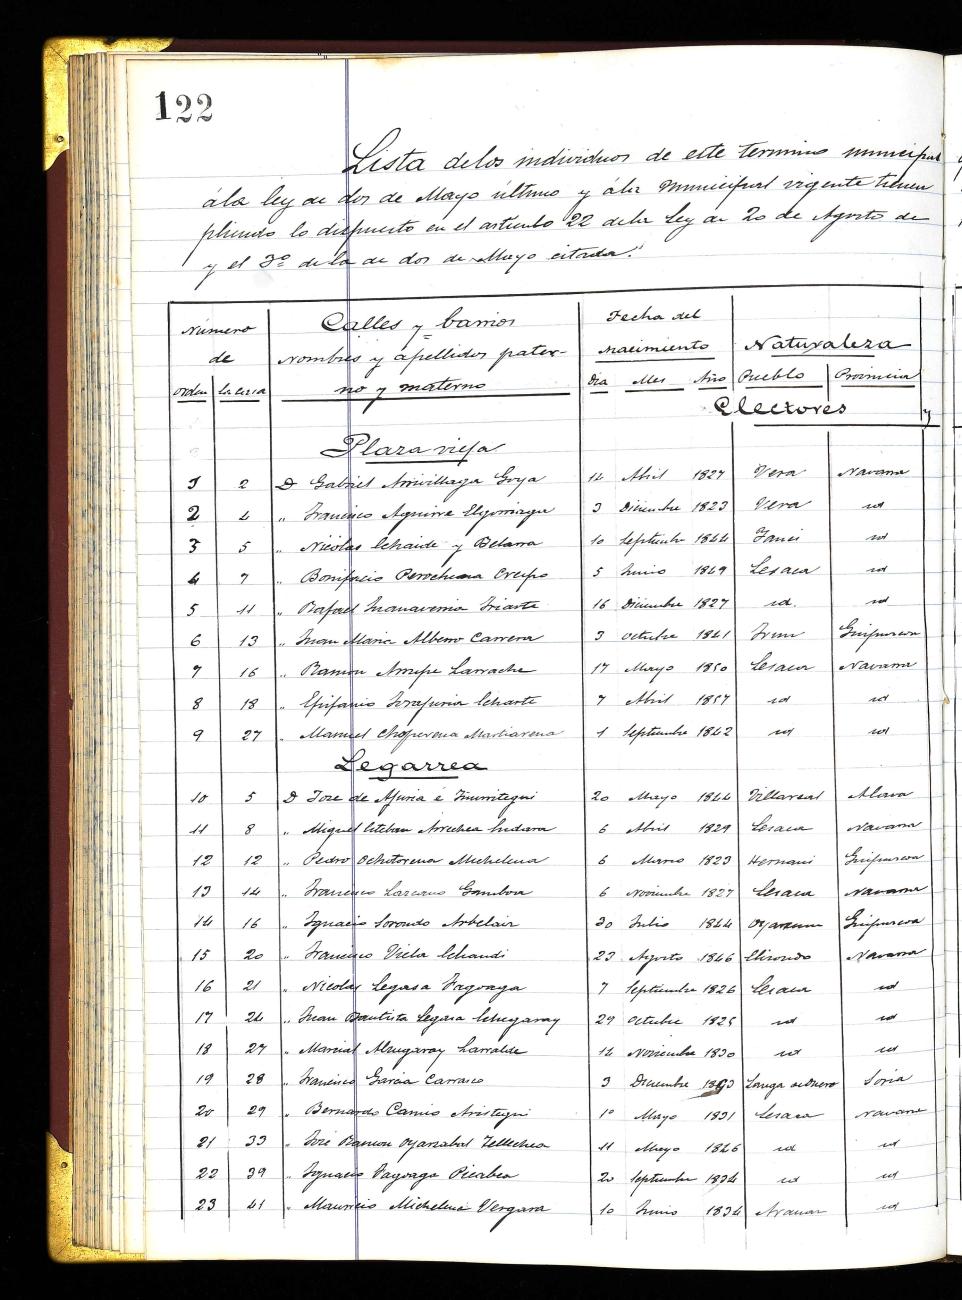 122
Lista de los individuos de este termino municipal
á la ley de dos de Mayo último y á la municipal vigente tienen
pliendo lo dispuesto en el articulo 22 de la Ley de 20 de Agosto de
y el 3º de la de dos de Mayo citada."
Número de Calles y barrios Fecha del
nombres y apellidos pater- nacimiento Naturaleza
orden la casa no y materno Dia Mes Año Pueblo Provincia
Electores y
Plaza vieja
1 2 D Gabriel Arrivillaga Goya 14 Abril 1827 Vera Navarra
2 4 " Francisco Aguirre 3 Diciembre 1823 Vera id
3 5 " Nicolas Echaide y Belarra 10 Septiembre 1844 id
4 7 " Bonifacio Perochena Crespo 5 Junio 1849 Lesaca id
5 11 " Rafael Iriarte 16 Diciembre 1827 id. id
6 13 " Juan Maria Alberro Carrera 3 Octubre 1841 Irun Guipuzcoa
7 16 " Ramon Arrupe Larrache 17 Mayo 1850 Lesaca Navarra
8 18 " Epifanio 7 Abril 1857 id id
9 27 " Manuel Choperena Martiarena 1 Septiembre 1842 id id
Legarrea
10 5 D Jose de Ajuria é 20 Mayo 1844 Villareal Alava
11 8 " Miguel Esteban Arrechea Indara 6 Abril 1829 Lesaca Navarra
12 12 " Pedro Ochotorena Michelena 6 Marzo 1823 Hernani Guipuzcoa
13 14 " Francisco Lazcano Gamboa 6 Noviembre 1827 Lesaca Navarra
14 16 " Ignacio Sorondo Arbelaiz 30 Julio 1844 Oyarzun Guipuzcoa
15 20 " Francisco Vicla Echandi 23 Agosto 1846 Elizondo Navarra
16 21 " Nicolas Legasa Fagoaga 7 Septiembre 1826 Lesaca id
17 24 " Juan Bautista Legasa Echegaray 29 Octubre 1825 id id
18 27 " Marcial Alzugaray Larralde 14 Noviembre 1830 id id
19 28 " Francisco Garcia Carrasco 3 Diciembre Langa de Duero Soria
20 29 " Bernardo Camio Aristegui 10 Mayo 1831 Lesaca Navarra
21 33 " José Ramon Oyarzabal Tellechea 11 Mayo 1846 id id
22 39 " Ignacio Fagoaga Picabea 20 Septiembre 1834 id id
23 41 " Mauricio Michelena Vergara 10 Junio 1834 Aranaz id